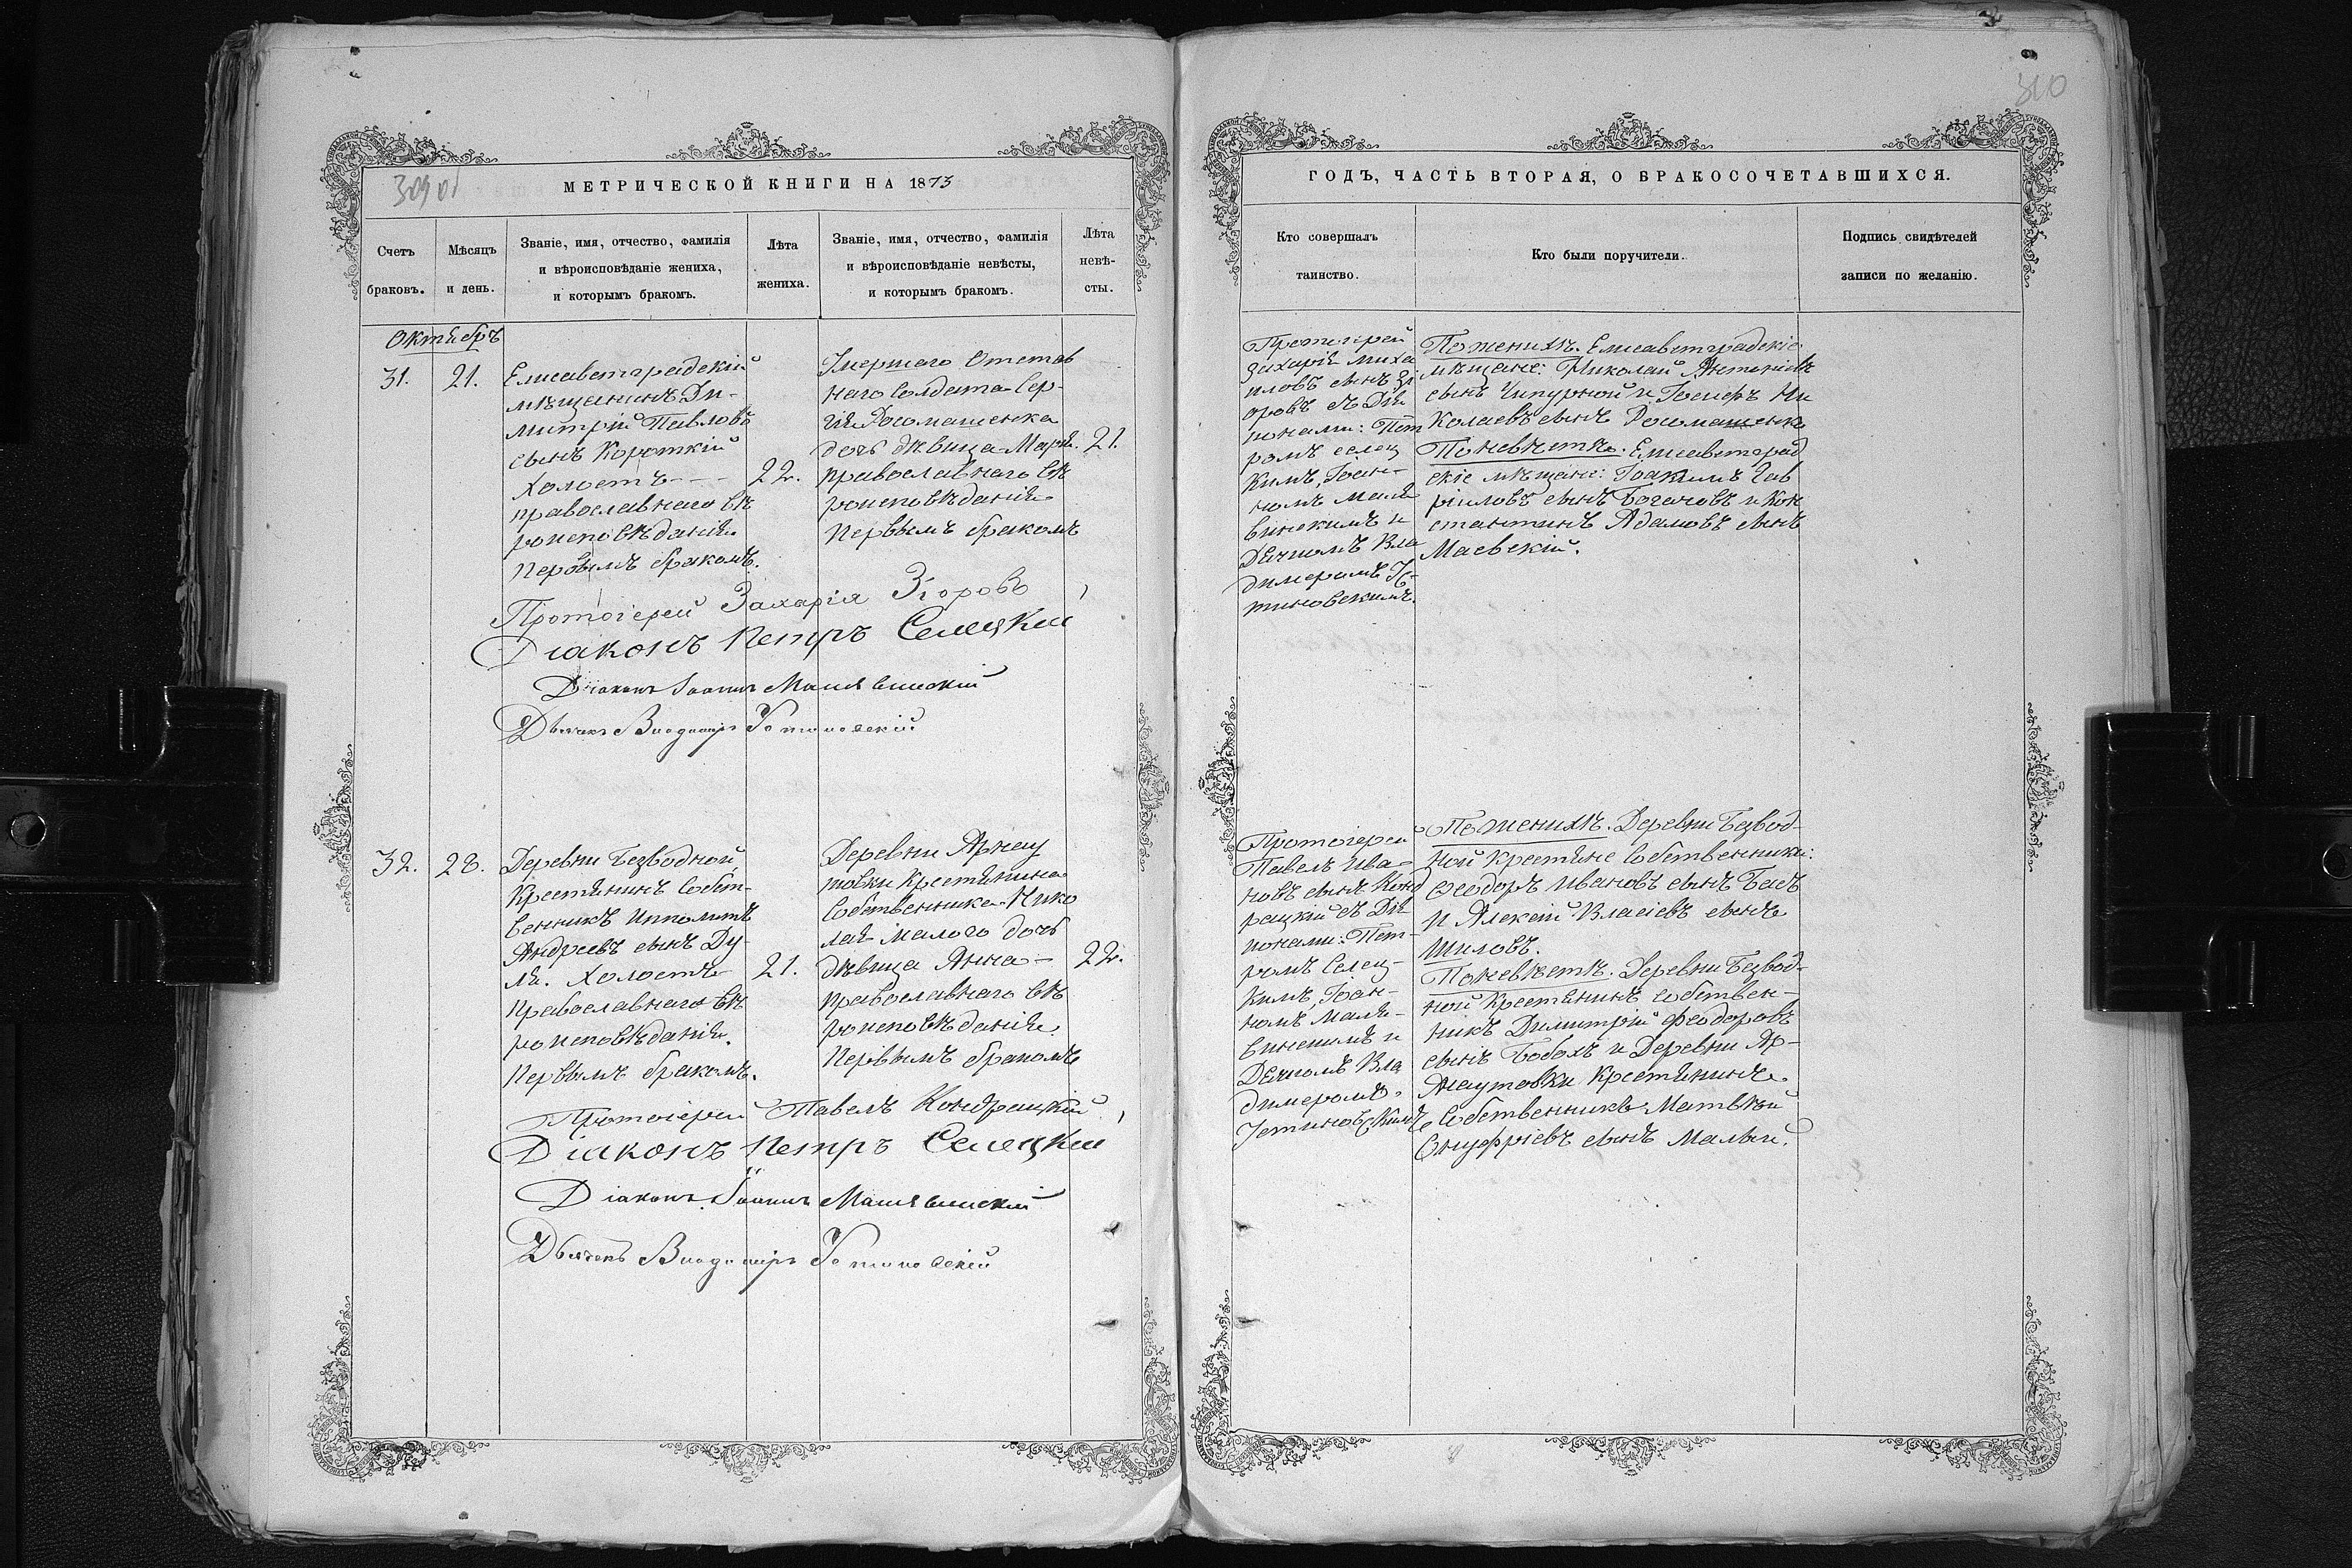 309 об
МЕТРИЧЕСКОЙ КНИГИ НА 1873
Счетъ браковъ.
Мѣсяцъ и день.
Званіе, имя, отчество, фамилія
и вѣроисповѣданіе жениха,
и которымъ бракомъ.
Лѣта
жениха.
Званіе, имя, отчество, фамилія
и вѣроисповѣданіе невѣсты,
и которымъ бракомъ.
Лѣта
невѣ-
сты.
Октябрь
31.
21.
Елисаветградскій
мѣщанинъ Ди-
митрій Павловъ
сынъ Короткій
Холостъ
православнаго вѣ
роисповѣданія
первымъ бракомъ.
22.
Умершаго Отстав
наго Солдата Сер-
гія Росомашенка
дочь дѣвица Марія.
православнаго вѣ
роисповѣданія
первымъ бракомъ
21.
Протоіерей Захарія Згоровъ
Діаконъ Петръ Селецкій
Діаконъ Іоаннъ Малявинскій
Дьячекъ Владиміръ Устиновскій
32.
28.
Деревни Безводной
Крестьянинъ Собст-
венникъ Ипполитъ
Андреевъ сынъ Ду-
ля. Холостъ
православнаго вѣ
роисповѣданія.
первымъ бракомъ.
21.
Деревни Арнау
товки Крестьянина
Собственника Нико
лая Малого дочь
дѣвица Анна
православнаго вѣ
роисповѣданія
первымъ бракомъ
22.
Протоіерей Павелъ Кондрацкій
Діаконъ Петръ Селецкій
Діаконъ Іоаннъ Малявинскій
Дьячекъ Владиміръ Устиновскій
310
ГОДЪ, ЧАСТЬ ВТОРАЯ, О БРАКОСОЧЕТАВШИХСЯ.
Кто совершалъ
таинство.
Кто были поручители.
Подпись свидѣтелей
записи по желанію.
Протоіерей
Захарія Миха
иловъ сынъ Зг
оровъ съ Діа
конами: Пет
ромъ Селец
кимъ, Іоан-
номъ Маля
винскимъ и
Дьячкомъ Вла
димеромъ Ус-
тиновскимъ.
По женихѣ. Елисаветградскіе
мѣщане: Николай Антоніевъ
сынъ Чипурной и Іосифъ Ни
колаевъ сынъ Росомашенко
По невѣстѣ. Елисаветград
скіе мѣщане: Іоакимъ Гав
ріиловъ сынъ Богачовъ и Кон
стантинъ Адамовъ сынъ
Маевскій.
Протоіерей
Павелъ Ива-
новъ сынъ Конд
рацкій съ Діа
конами: Пет-
ромъ Селец-
кимъ, Іоан-
номъ Маля-
винскимъ и
Дьячкомъ Вла
димеромъ
Устиновскимъ
По женихѣ. Деревни Безвод-
ной Крестьяне Собственники:
Ѳеодоръ Ивановъ сынъ
и Алексій Власіевъ сынъ
Шиловъ.
По невѣстѣ. Деревни Безвод-
ной Крестьянинъ Собствен-
никъ Димитрій Феодоровъ
сынъ Бобохъ и Деревни Ар-
наутовки Крестьянинъ
Собственникъ Матвѣй
Онуфріевъ сынъ Малый.